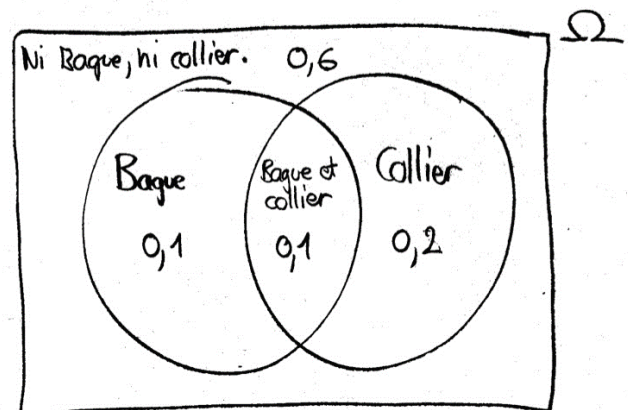 Ω
Ni Bague, ni collier. 0,6
Bague
0,1
Bague et
collier
0,1
Collier
0,2